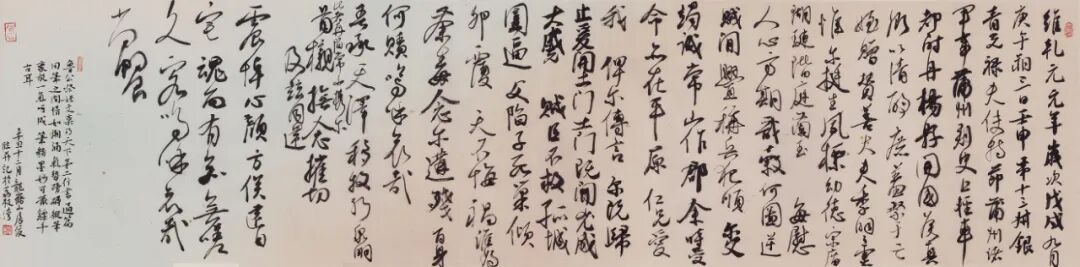 維乾元元年歲次戊戌九月
庚午朔三日壬申第十三叔銀
青光祿夫使持節蒲州諸
軍事蒲州刺史上輕車
都尉丹楊縣開國侯真
卿以清酌庶羞祭于亡
姪贈贊善大夫季明之靈
惟爾挺生夙標幼德宗廟
瑚璉階庭蘭玉每慰
人心方期戩穀何圖逆
賊間釁稱兵犯順爾父
竭誠常山作郡余時受
命亦在平原仁兄愛
我俾爾傳言爾既歸
止爰開土門土門既開凶威
大蹙賊臣不救孤城
圍逼父陷子死巢傾
卵覆天不悔禍誰為
荼毒念爾遘殘百身
何贖嗚呼哀哉
吾承天澤移牧河關泉明
比者再陷常山攜爾
首櫬撫念摧切
及茲同還
震悼心顏方俟遠日
宅魂而有知無嗟
久客嗚呼哀哉
尚饗
魯公祭姪文稿乃天下第二行書通篇
用筆之間情如潮涌氣勢磅礡縱筆
豪放一氣呵成筆精墨妙可
古耳
辛丑十二月